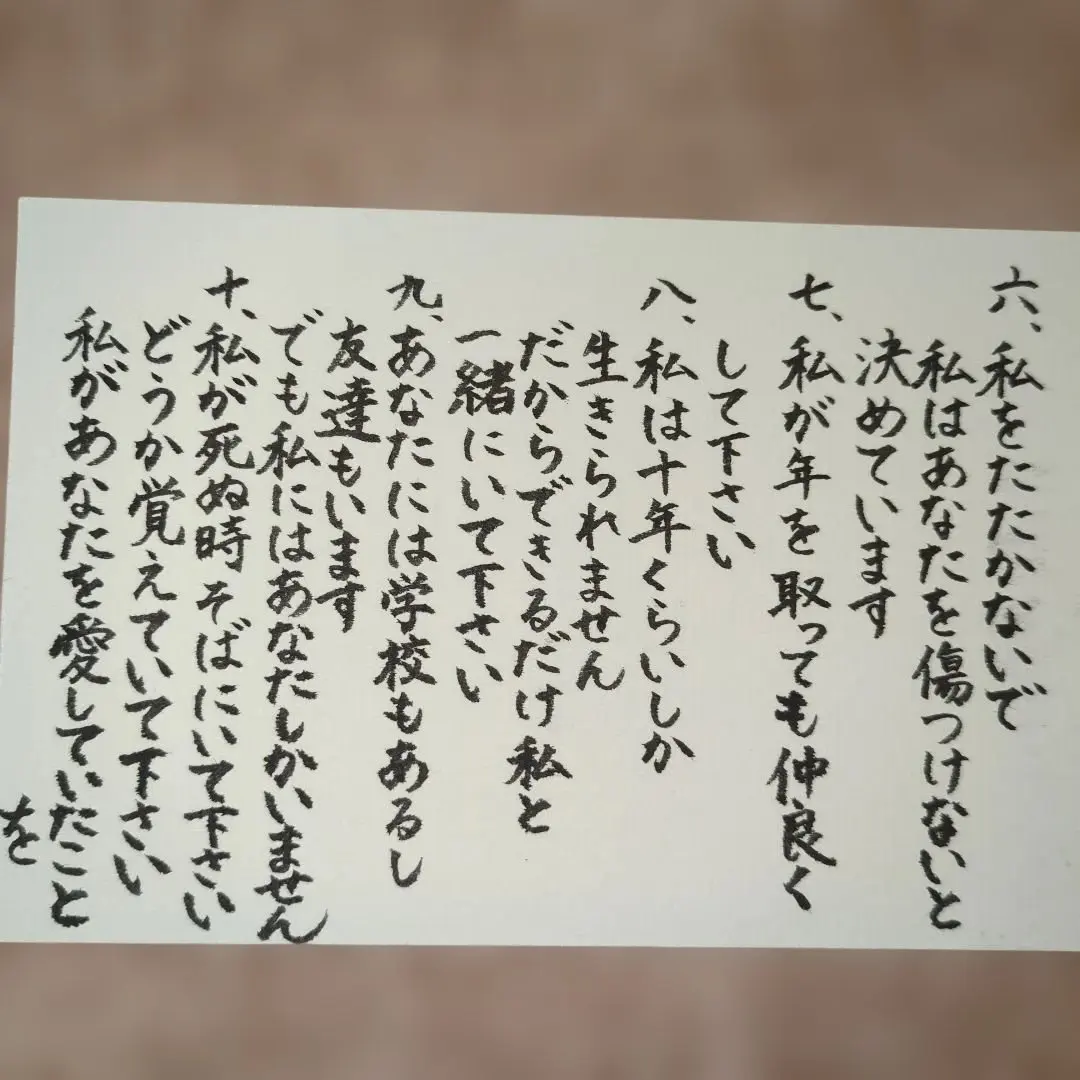 六、私をたたかないで
私はあなたを傷つけないと
決めています
七、私が年を取っても仲良く
して下さい
八、私は十年くらいしか
生きられません
だからできるだけ私と
一緒にいて下さい
九、あなたには学校もあるし
友達もいます
でも私にはあなたしかいません
十、私が死ぬ時そばにいて下さい
どうか覚えていて下さい
私があなたを愛していたこと
を